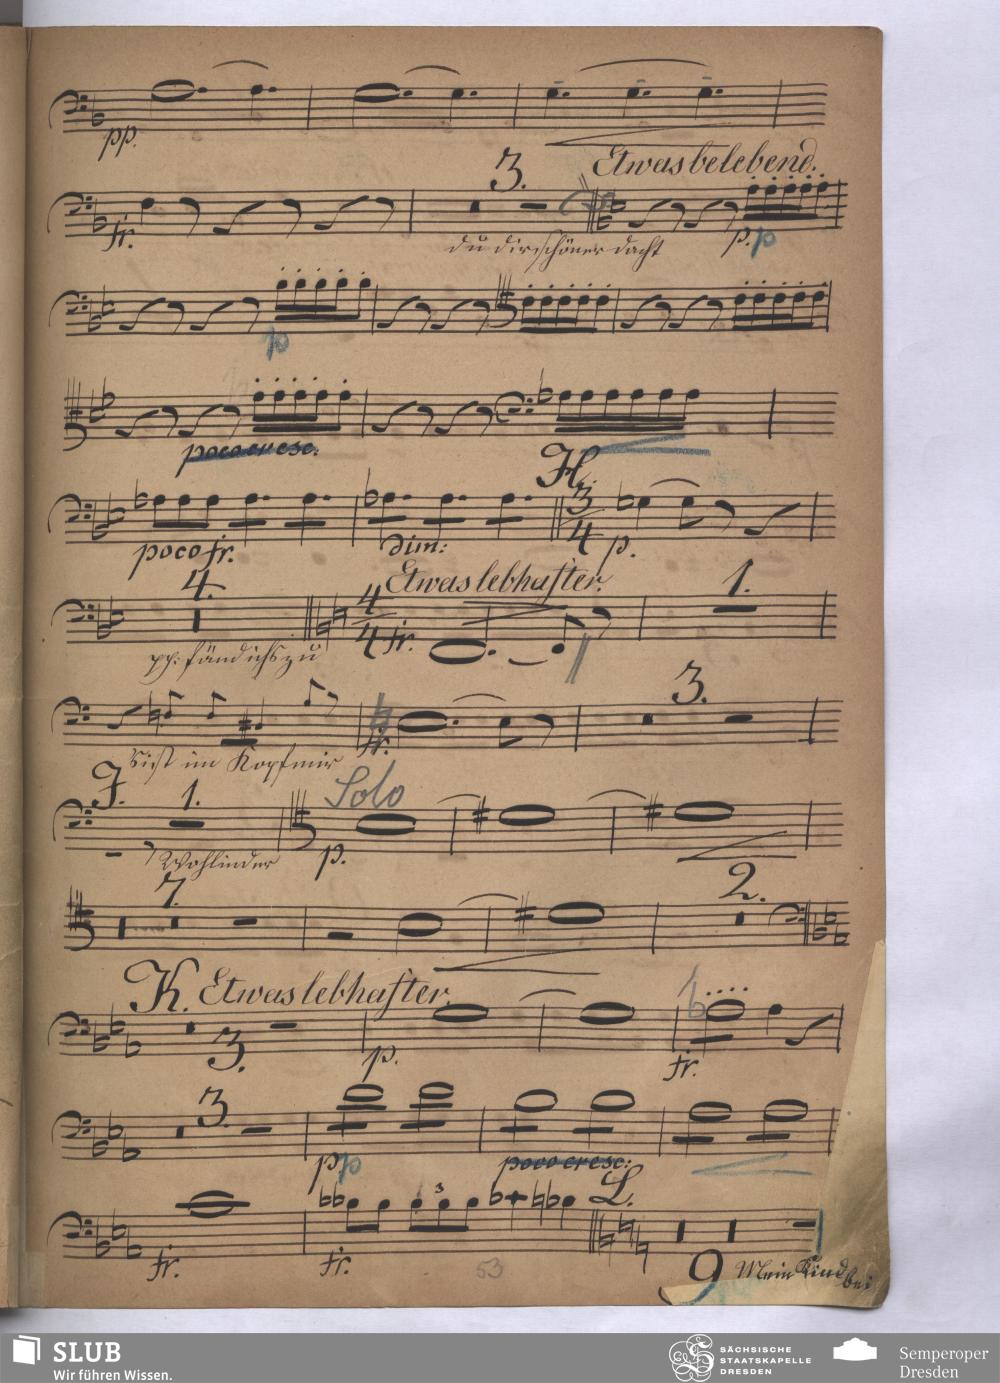 pp.
Etwas belebend.
3.
fr.
du dir schöner dacht
p. p
p
poco cresc.
H.
3
4
poco fr.
dim:
p.
4.
Etwas lebhafter.
4
4
fr.
1.
pp: fänd ichs zu
3.
fr.
Sist im Kopf mir
J.
1.
Solo
p.
7.
2.
K. Etwas lebhafter.
3.
p.
fr.
3.
p p
poco cresc:
3
L.
fr.
fr.
53
9
Mein Kind bei
SLUB
Wir führen Wissen.
SÄCHSISCHE
STAATSKAPELLE
DRESDEN
Semperoper
Dresden